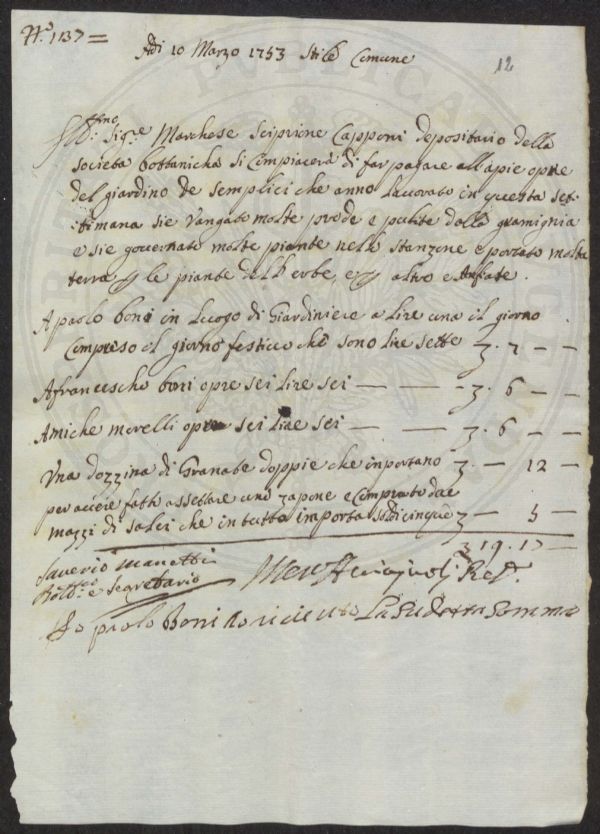 N.º 1137 =
Adì 10 Marzo 1753 Stile Comune
12
Ill.mo Sig.re Marchese Scipione Capponi depositario della
società bottanicha si Compiacerà di far pagare all'apie opre
del giardino de semplici che anno lavorato in questa set-
timana sie Vangato molte prode e pulite dalla gramignia
e sie governato molte piante nelo stanzone e portato molta
terra p le piante dell erbe, e p altro e
A paolo boni in Luogo di Giardiniere a Lire una il giorno
Compreso il giorno festivo che sono lire sette 3. 7 — —
A francescho boni opre sei Lire sei — — — 3. 6 — —
A miche morelli opre sei Lire sei — — 3. 6 — —
Una dozzina di Granate doppie che inportano 3. — 12 —
per avere fatto assettare uno zapone e Comprato due
mazzi di salci che in tutto importa soldi cinque 3 — 5 —
3 19. 17 —
Saverio Manetti
Bott.co e Segretario
Io paolo Boni o ricieuto La Sudetta Somma